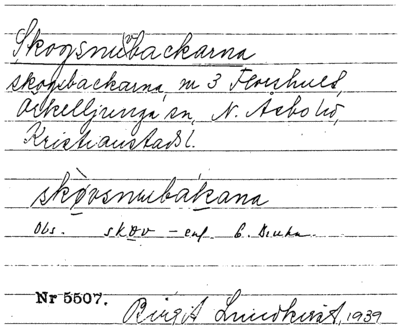 Skogsnubackarna
skogsbackarna, nr 3 Floshult,
Örkelljunga sn, N. Åsbo hd,
Kristianstads l.
skǫvsnubákana
Obs. skov – enl.
Nr 5507. Birgit Lundkvist, 1939